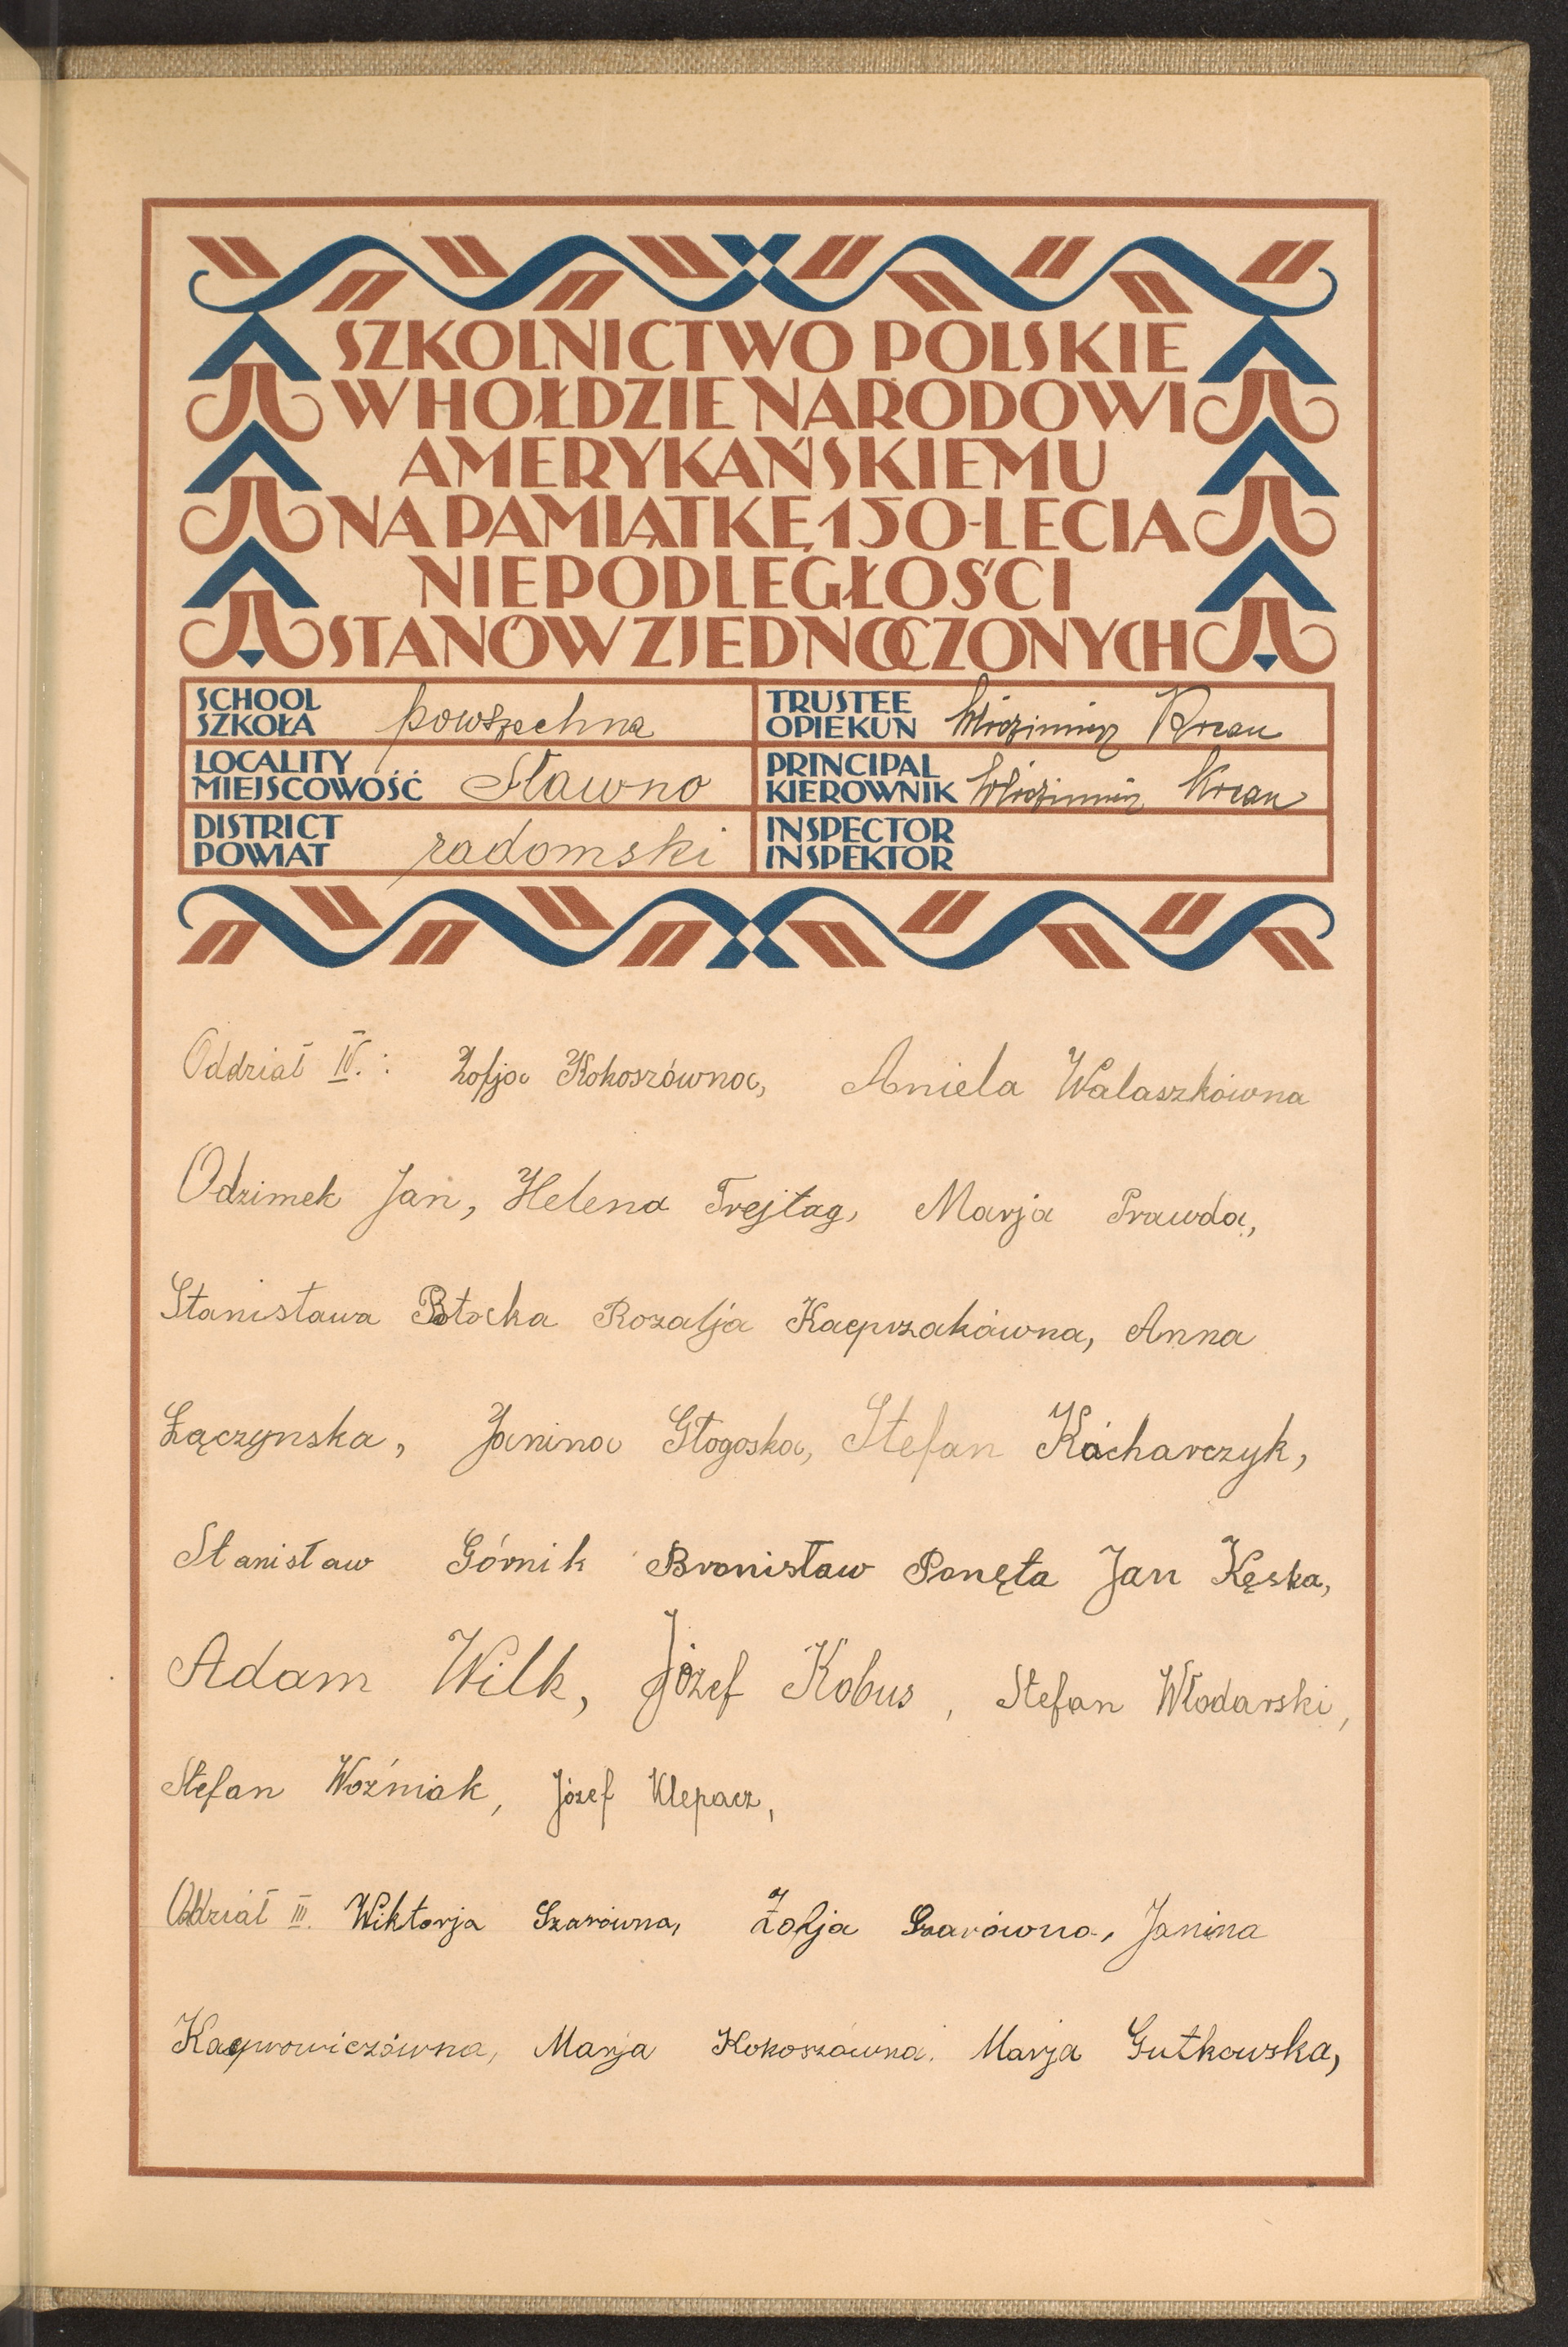 SZKOLNICTWO POLSKIE
W HOŁDZIE NARODOWI
AMERYKAŃSKIEMU
NA PAMIĄTKĘ 150-LECIA
NIEPODLEGŁOŚCI
STANÓW ZJEDNOCZONYCH
SCHOOL
SZKOŁA powszechna
TRUSTEE
OPIEKUN Włodzimierz
LOCALITY
MIEJSCOWOŚĆ Sławno
PRINCIPAL
KIEROWNIK Włodzimierz
DISTRICT
POWIAT radomski
INSPECTOR
INSPEKTOR
Oddział IV.: Zofja Kokoszówna, Aniela Walaszkówna
Odzimek Jan, Helena Trejtag, Marja Prawda,
Stanisława Potocka Rozalja Kacprzakówna, Anna
Łączynska, Janina Głogoska, Stefan Kacharczyk,
Stanisław Górnik Bronisław Ponęta Jan Kęska,
Adam Wilk, Józef Kobus, Stefan Włodarski,
Stefan Woźniak, Józef Klepacz,
Oddział III. Wiktorja Szarówna, Zofja Szarówna, Janina
Kacprowiczówna, Marja Kokoszówna. Marja Gutkowska,